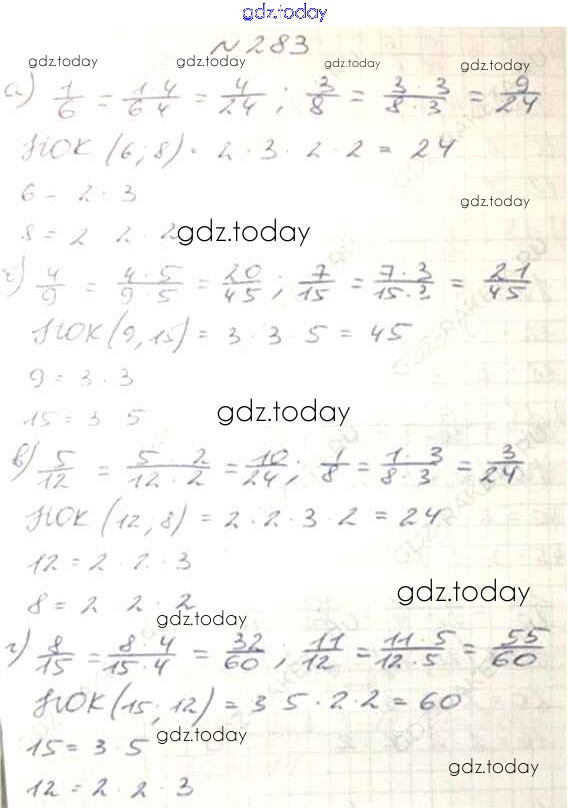 gdz.today
№283
gdz.today gdz.today gdz.today gdz.today
а) 1/6 = 1·4/6·4 = 4/24; 3/8 = 3·3/8·3 = 9/24
НОК (6; 8) = 2·3·2·2 = 24
6 = 2·3
gdz.today
8 = 2 2·2
gdz.today
б) 4/9 = 4·5/9·5 = 20/45; 7/15 = 7·3/15·3 = 21/45
НОК (9, 15) = 3·3·5 = 45
9 = 3·3
15 = 3 5
gdz.today
в) 5/12 = 5·2/12·2 = 10/24; 1/8 = 1·3/8·3 = 3/24
НОК (12, 8) = 2·2·3·2 = 24
12 = 2·2·3
gdz.today
8 = 2 2·2
gdz.today
г) 8/15 = 8·4/15·4 = 32/60; 11/12 = 11·5/12·5 = 55/60
НОК (15; 12) = 3 5·2·2 = 60
15 = 3·5
gdz.today
gdz.today
12 = 2·2·3